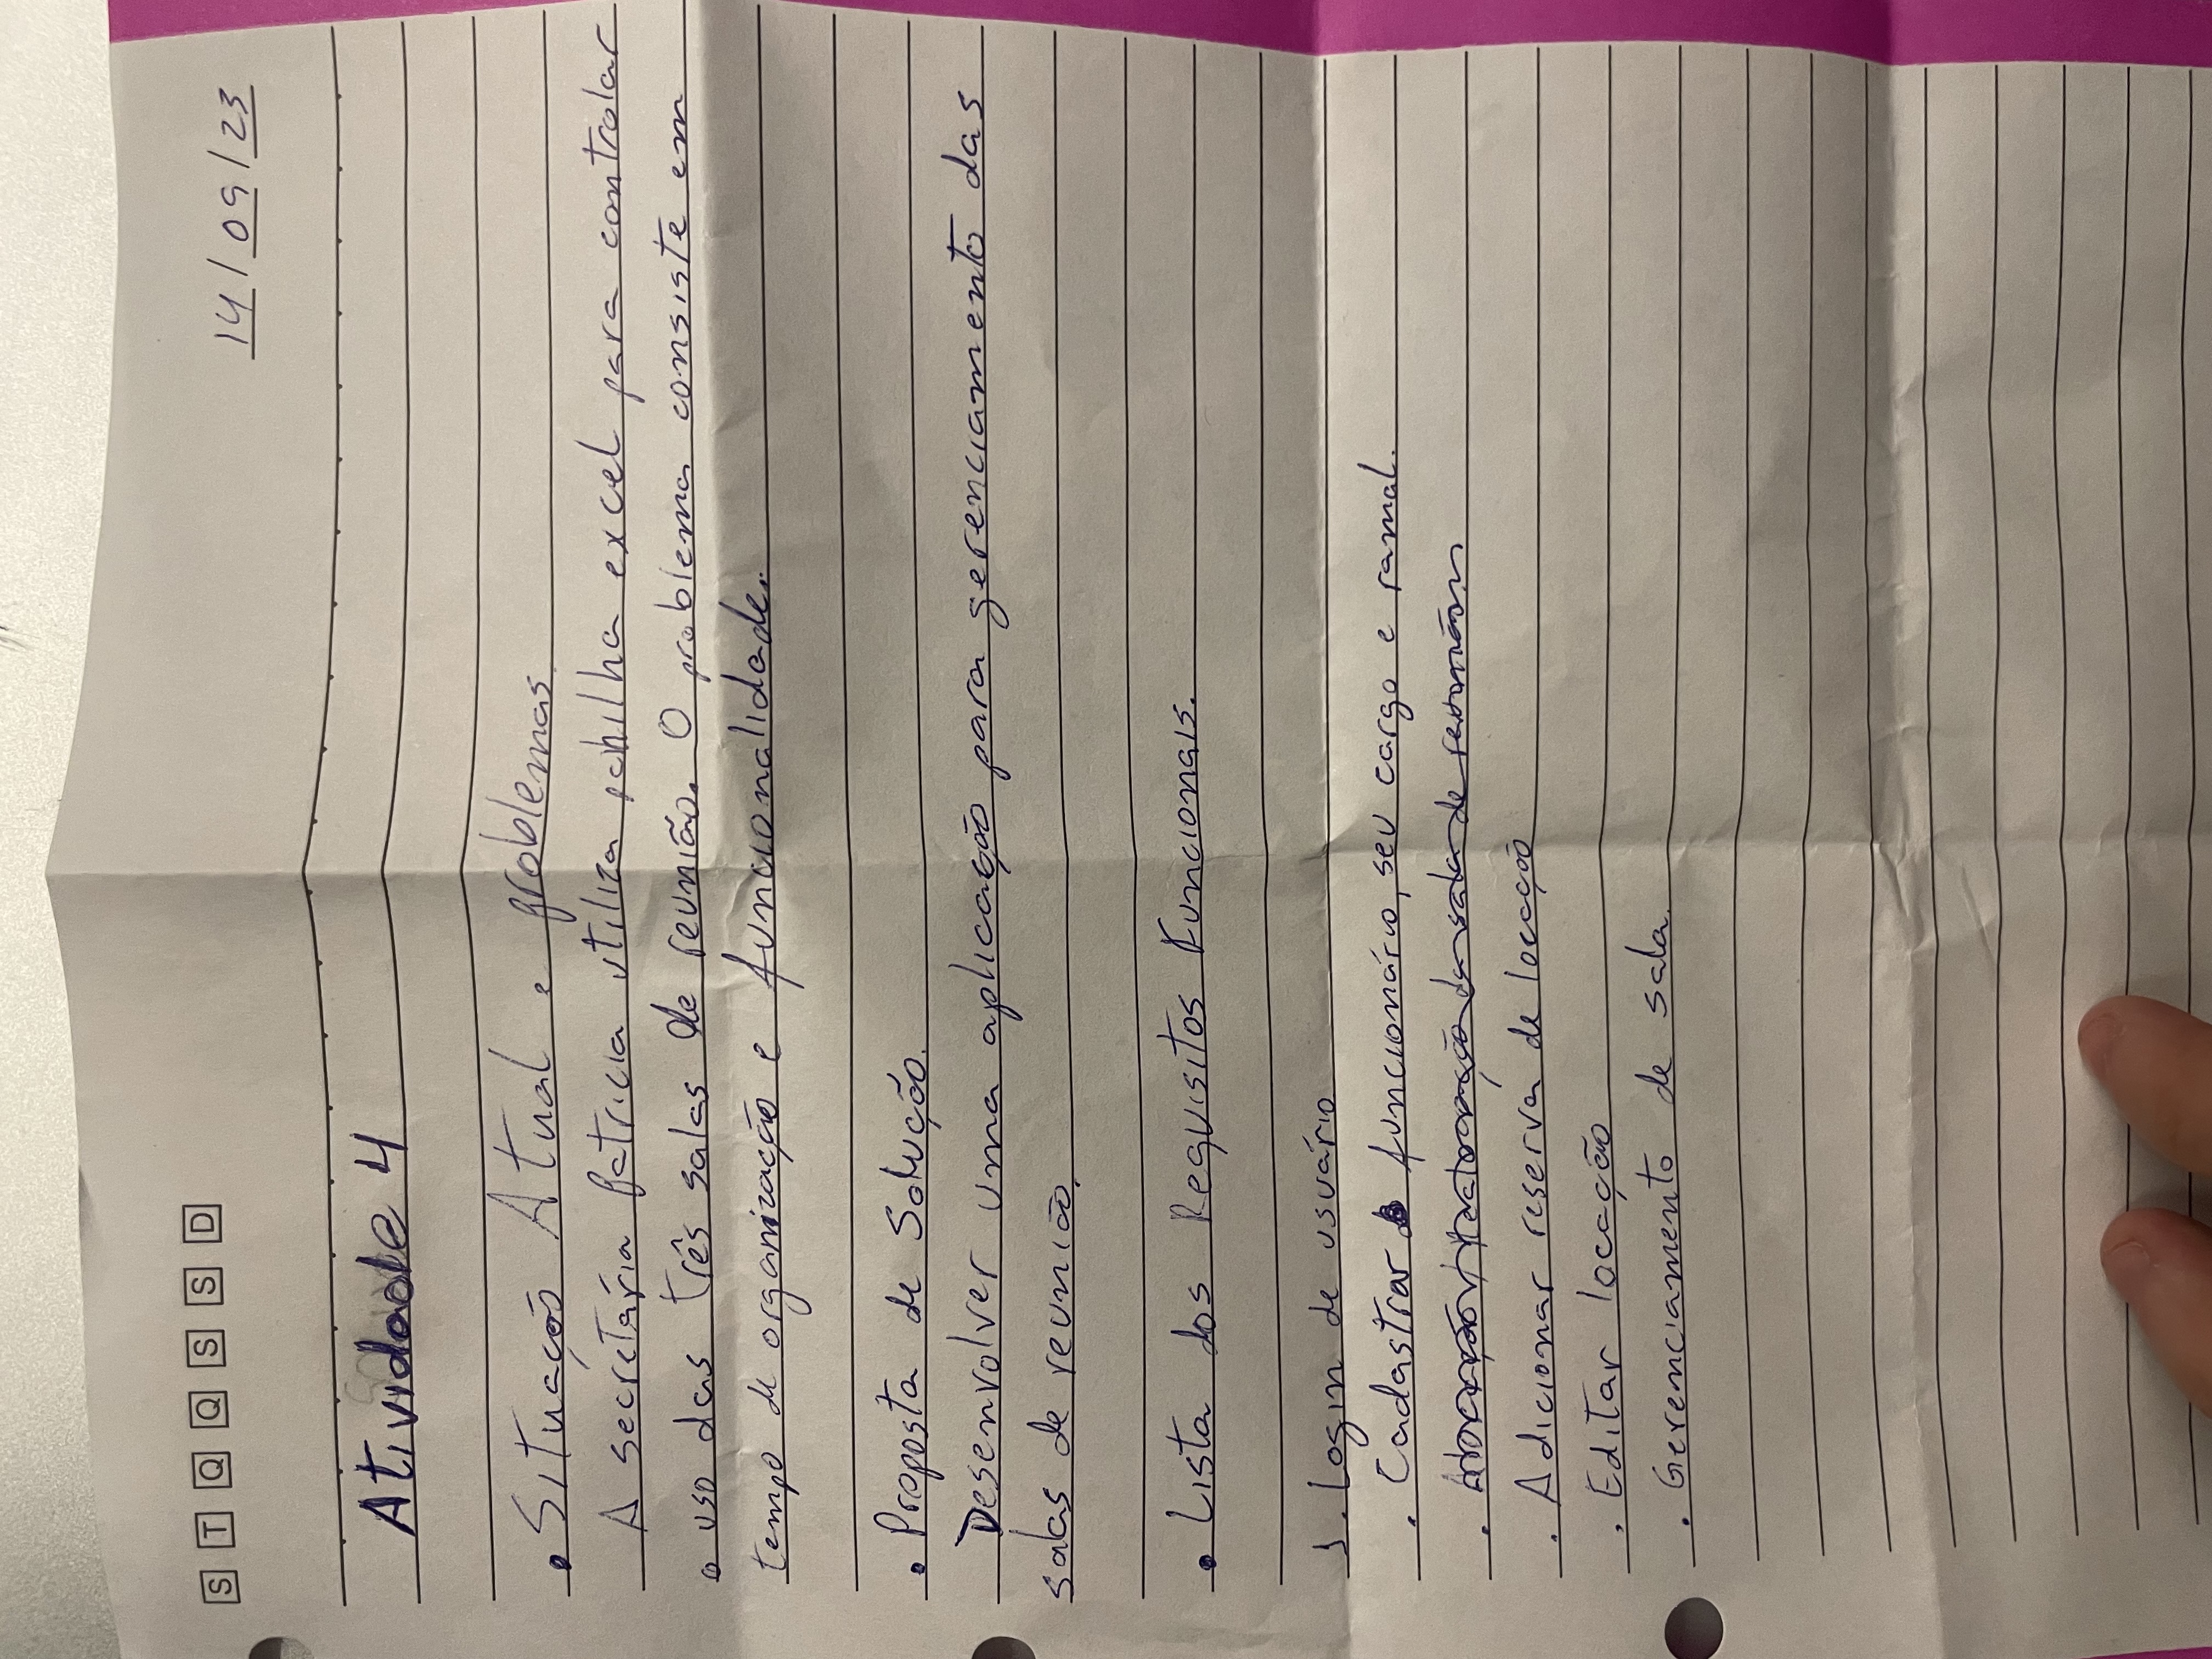 S T Q Q S S D
14 / 09 / 23
Atividade 4
• Situação Atual e problemas.
A secretária Patricia utiliza planilha excel para controlar
o uso das três salas de reunião. O problema consiste em
tempo de organização e funcionalidade.
• Proposta de Solução.
Desenvolver uma aplicação para gerenciamento das
salas de reunião.
• Lista dos Requisitos Funcionais.
1. Login de usuário
. Cadastrar funcionário, seu cargo e ramal.
. da sala de reunião
. Adicionar reserva de locação
. Editar locação
. Gerenciamento de sala.